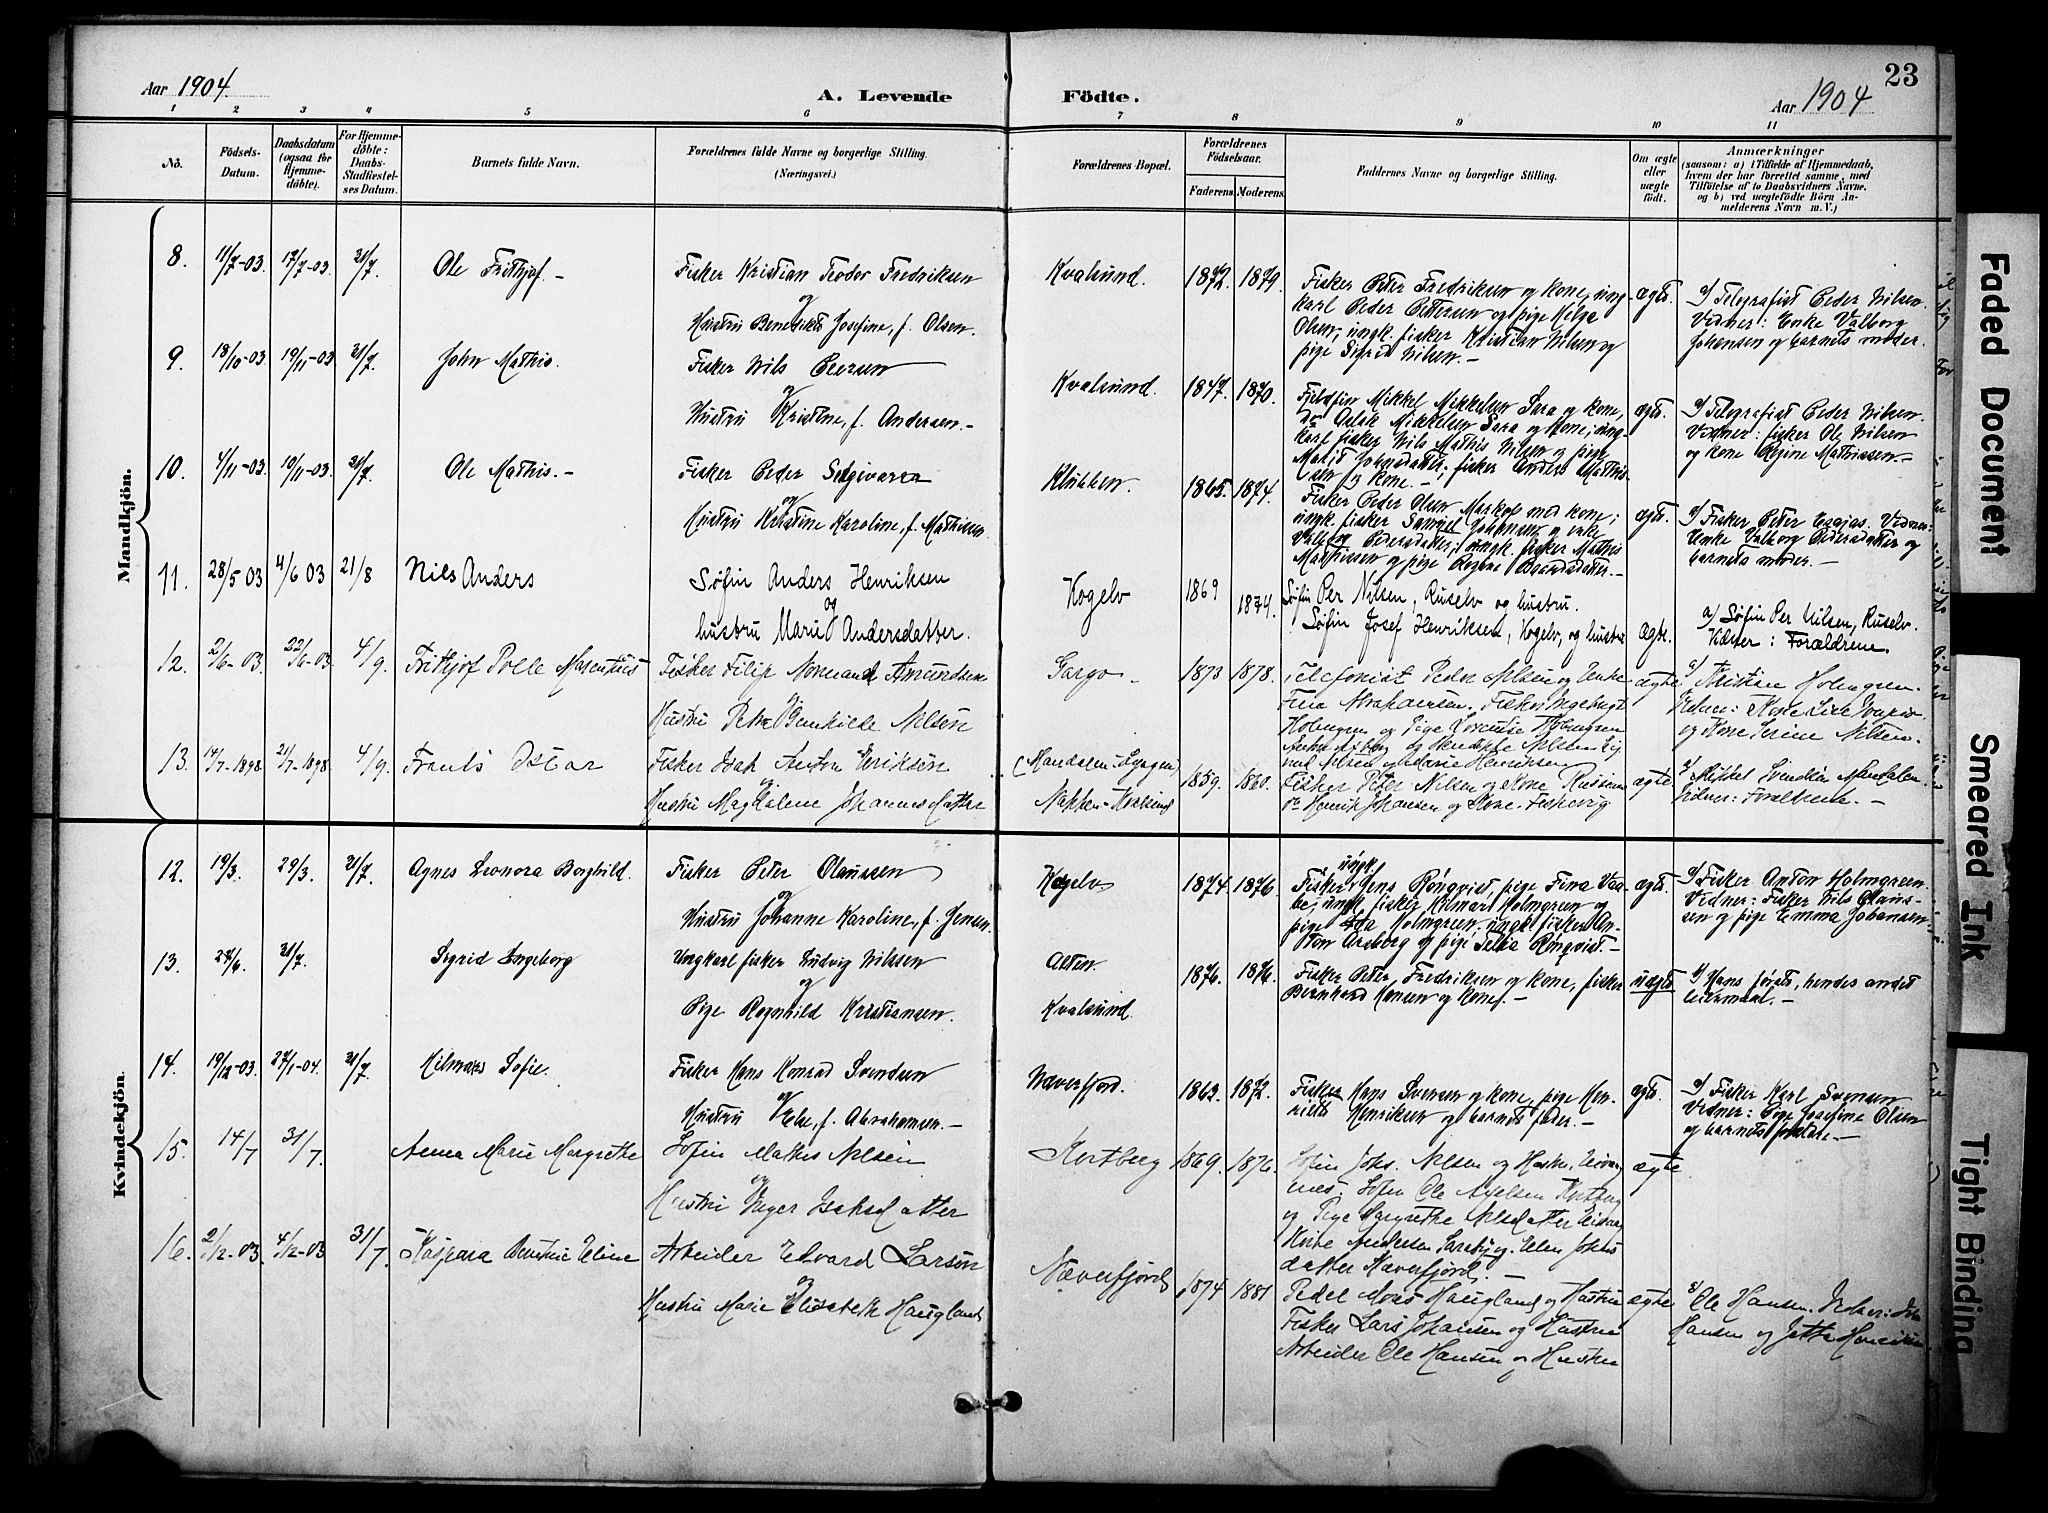 Aar 1904.
A. Levende Födte.
Aar 1904
23
1 2 3 4 5 6 7 8 9 10 11
Nô.
Födsels-Datum.
Daabsdatum (ogsaa for Hjemme-döbte).
For Hjemme-döbte: Daabs-Stadfæstel-ses Datum.
Barnets fulde Navn.
Forældrenes fulde Navne og borgerlige Stilling. (Næringsvei.)
Forældrenes Bopæl.
Forældrenes Födselsaar.
Faderens. Moderens.
Faddernes Navne og borgerlige Stilling.
Om ægte eller uægte født.
Anmærkninger
(saasom: a) i Tilfælde af Hjemmedaab, hvem der har forrettet samme, med Tilföielse af to Daabsvidners Navne. og b) ved uægtefödte Börn An-melderens Navn m. V.)
Mandkjön.
8. 11/7-03. 17/7-03. 31/7. Ole Frithjof. - Fisker Kristian Teodor Fredriksen
og
Hustru Benedikte Josefine, f. Olsen.
Kvalsund. 1872. 1879.
Fisker Peter Fredriksen og kone, ung-
karl Peder Pettersen og pige Helga
Olsen, ungk. fisker Kristian Nilsen og
pige Sigrid Nilsen. -
ægte.
a) Telegrafist Peder Nilsen.
Vidner: Enke Valborg
Johansen og barnets moder.
9. 18/10-03 19/11-03 31/7. John Mathis. Fisker Nils Peersen
og
Hustru Kristine, f. Andersen. -
Kvalsund. 1847. 1870.
Fjeldfin Mikkel Mikkelsen Sara og kone,
do Aslak Mikkelsen Sara og kone; ung-
karl fisker Nils Mathis Nilsen og pige
Marit Johnsdatter; fisker Anders Mathis-
sen og kone. -
ægte.
a) Telegrafist Peder Nilsen.
Vidner: fisker Ole Nilsen
og kone Regine Mathissen. -
10. 4/11-03. 10/11-03. 31/7. Ole Mathis. - Fisker Peder
og
Hustru Kristine Karoline, f. Mathisen.
Klubben. 1865. 1874.
Fisker Peder Olsen Markop med kone;
ungk. fisker Samuel Johansen og enke
Valborg Pedersdatter; ungk. fisker Mathis
Mathissen og pige Regine
ægte.
a) Fisker Peter Esajas. Vidner:
Enke Valborg Pedersdatter og
barnets moder. -
11. 28/5 03 4/6 03 21/8 Nils Anders Søfin Anders Henriksen
og
hustru Marit Andersdatter.
Kogelv 1869 1874.
Søfin Per Nilsen, Ruselv og hustru.
Søfin Josef Henriksen, Kogelv, og hustru
ægte.
a) Søfin Per Nilsen, Ruselv.
Vidner: Forældrene.
12. 2/6-03. 22/6-03. 4/9. Frithjof Polle Fisker Filip Normand Amundsen
og
Hustru Petra Nilsen
Gargo - 1873 1878.
Telefonist Peder Nilsen og Enke
Fina Abrahamsen. Fisker Ingebrigt
Holmgren og Pige Lovise Holmgren
ægte
a) Kristian Holmgren.
og Kone Serine Nilsen.
13. 14/7-1898 21/7-1898. 4/9. Frants Oskar Fisker Isak Anton Eriksen
og
Hustru Magdalene Johannesdatter
(Mandalen i Lyngen)
Nakken-Kvalsund
1859. 1860.
Fisker Peter Nilsen og Kone
do Henrik Johansen og Kone. Fiskevig
ægte
a) Mikkel Svendsen Mandalen.
Vidner: Forældrene. -
Kvindekjön.
12. 19/3. 29/3. 31/7. Agnes Leonora Borghild. Fisker Peter Olaussen
og
Hustru Johanne Karoline, f. Jensen.
Kogelv 1874. 1876.
ungk.
Fisker Jens Rönqvist, pige Fina Vaa-
be; ungk. fisker Hilmart Holmgreen og
pige Holmgreen, ungk. fisker An-
ton Arsberg og pige Rönqvist. -
ægte.
a) Fisker Anton Holmgreen.
Vidner: Fisker Nils Olaus-
sen og pige Emma Johansen.
13. 27/6. 31/7. Sigrid Ingeborg Ungkarl fisker Ludvig Nilssen
og
Pige Ragnhild Kristiansen.
Alten.
Kvalsund.
1876. 1876.
Fisker Peter Fredriksen og kone, fisker
Bernhard Hansen og kone. -
uægte
b) Hans første, hendes andet
leiermaal. -
14. 19/12-03. 27/1-04. 31/7. Sofie. Fisker Hans Konrad Svendsen
og
Hustru f. Abrahamsen. -
Næverfjord. 1863. 1872.
Fisker Hans Svensen og kone, pige Hen-
riette Henriksen og barnets fader. -
ægte.
a) Fisker Karl Svensen
Vidner: Pige Josefine Olsen
og barnets
15. 14/7 31/7. Anna Marie Margrethe Søfin Mathis Nilsen
og
Hustru Inger Isaksdatter
Kortberg 1869. 1876.
Søfin Johs. Nilsen og Hustru,
Søfin Ole Kortberg
og Pige Margrethe Nilsdatter
Andersen Saraby og Elen Johns
datter Næverfjord. -
ægte
16. 2/12-03. 4/12-03 31/7. Kaspara Eline Arbeider Edvard Larsen
og
Hustru Marie Elisabeth Haugland
Næverfjord 1874 1881
Pedel Mons Haugland og Hustru
Fisker Lars Johansen og Hustru
Arbeider Ole Hansen og Hustru
ægte
a) Ole Hansen. Vidner:
Hansen og
Faded Document
Smeared Ink
Tight Binding